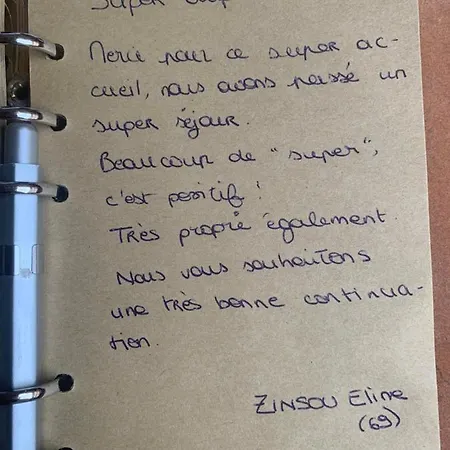 Super
Merci pour ce super ac-
cueil, nous avons passé un
super séjour.
Beaucoup de "super",
c'est positif !
Très propre également.
Nous vous souhaitons
une très bonne continua-
tion.
ZINSOU Eline
(69)